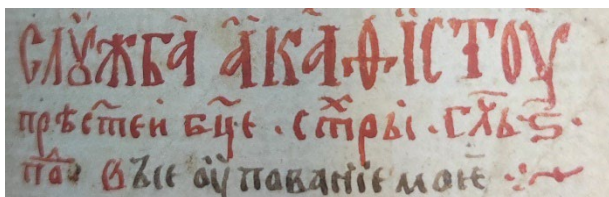 слꙋ́жба̀ а҆ка́ѳїстоу̀
прѣст҃еи бц҃е · ст҃рⷯы · гл҃ь · ѕ҃ ·
поⷣ въсе оупованїе мое ·